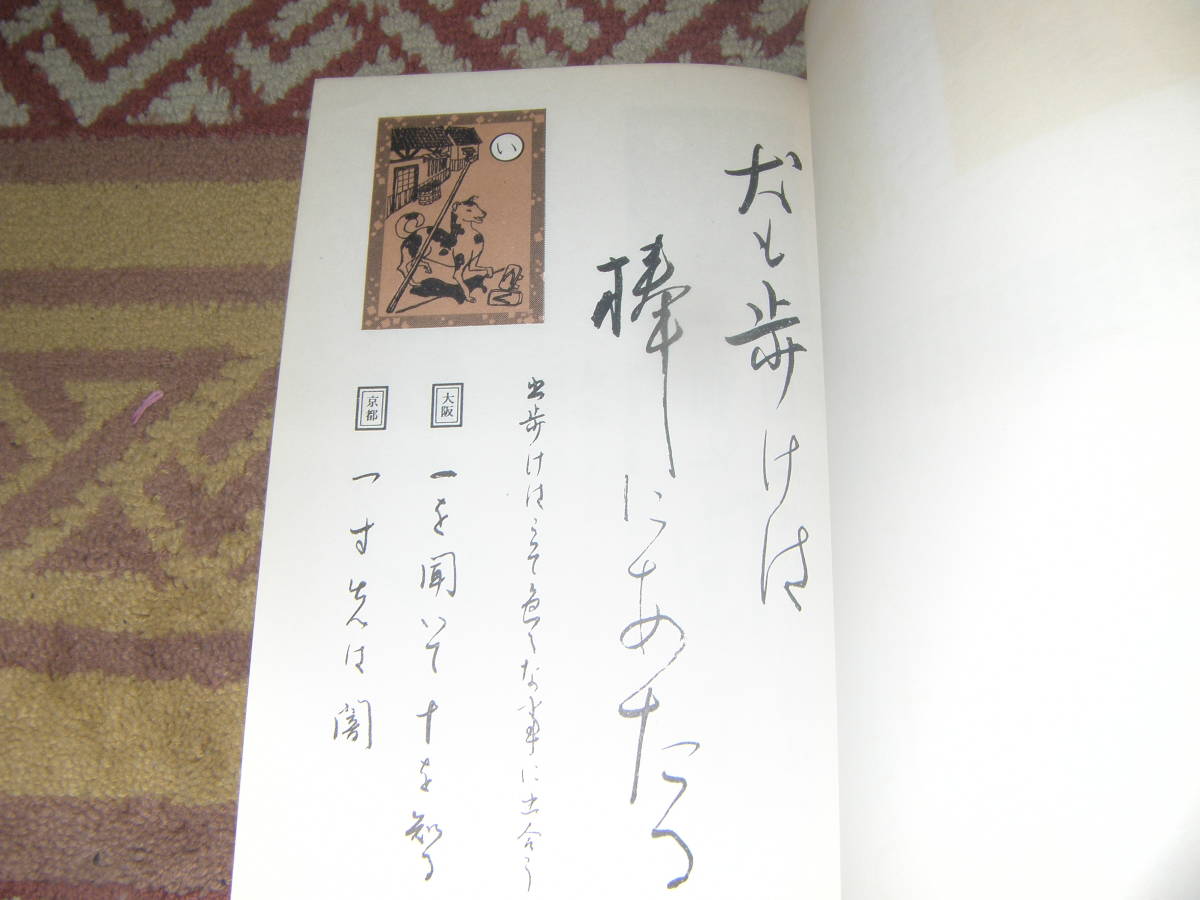 犬も歩けは
棒にあたる
い
出歩けはそこて色々な事に出合う
大阪
一を聞いて十を知る
京都
一寸先は闇